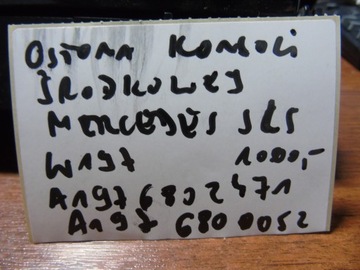 OSŁONA KONSOLI
ŚRODKOWEJ
MERCEDES SLS
W197 1000,-
A197 6802471
A197 6800052